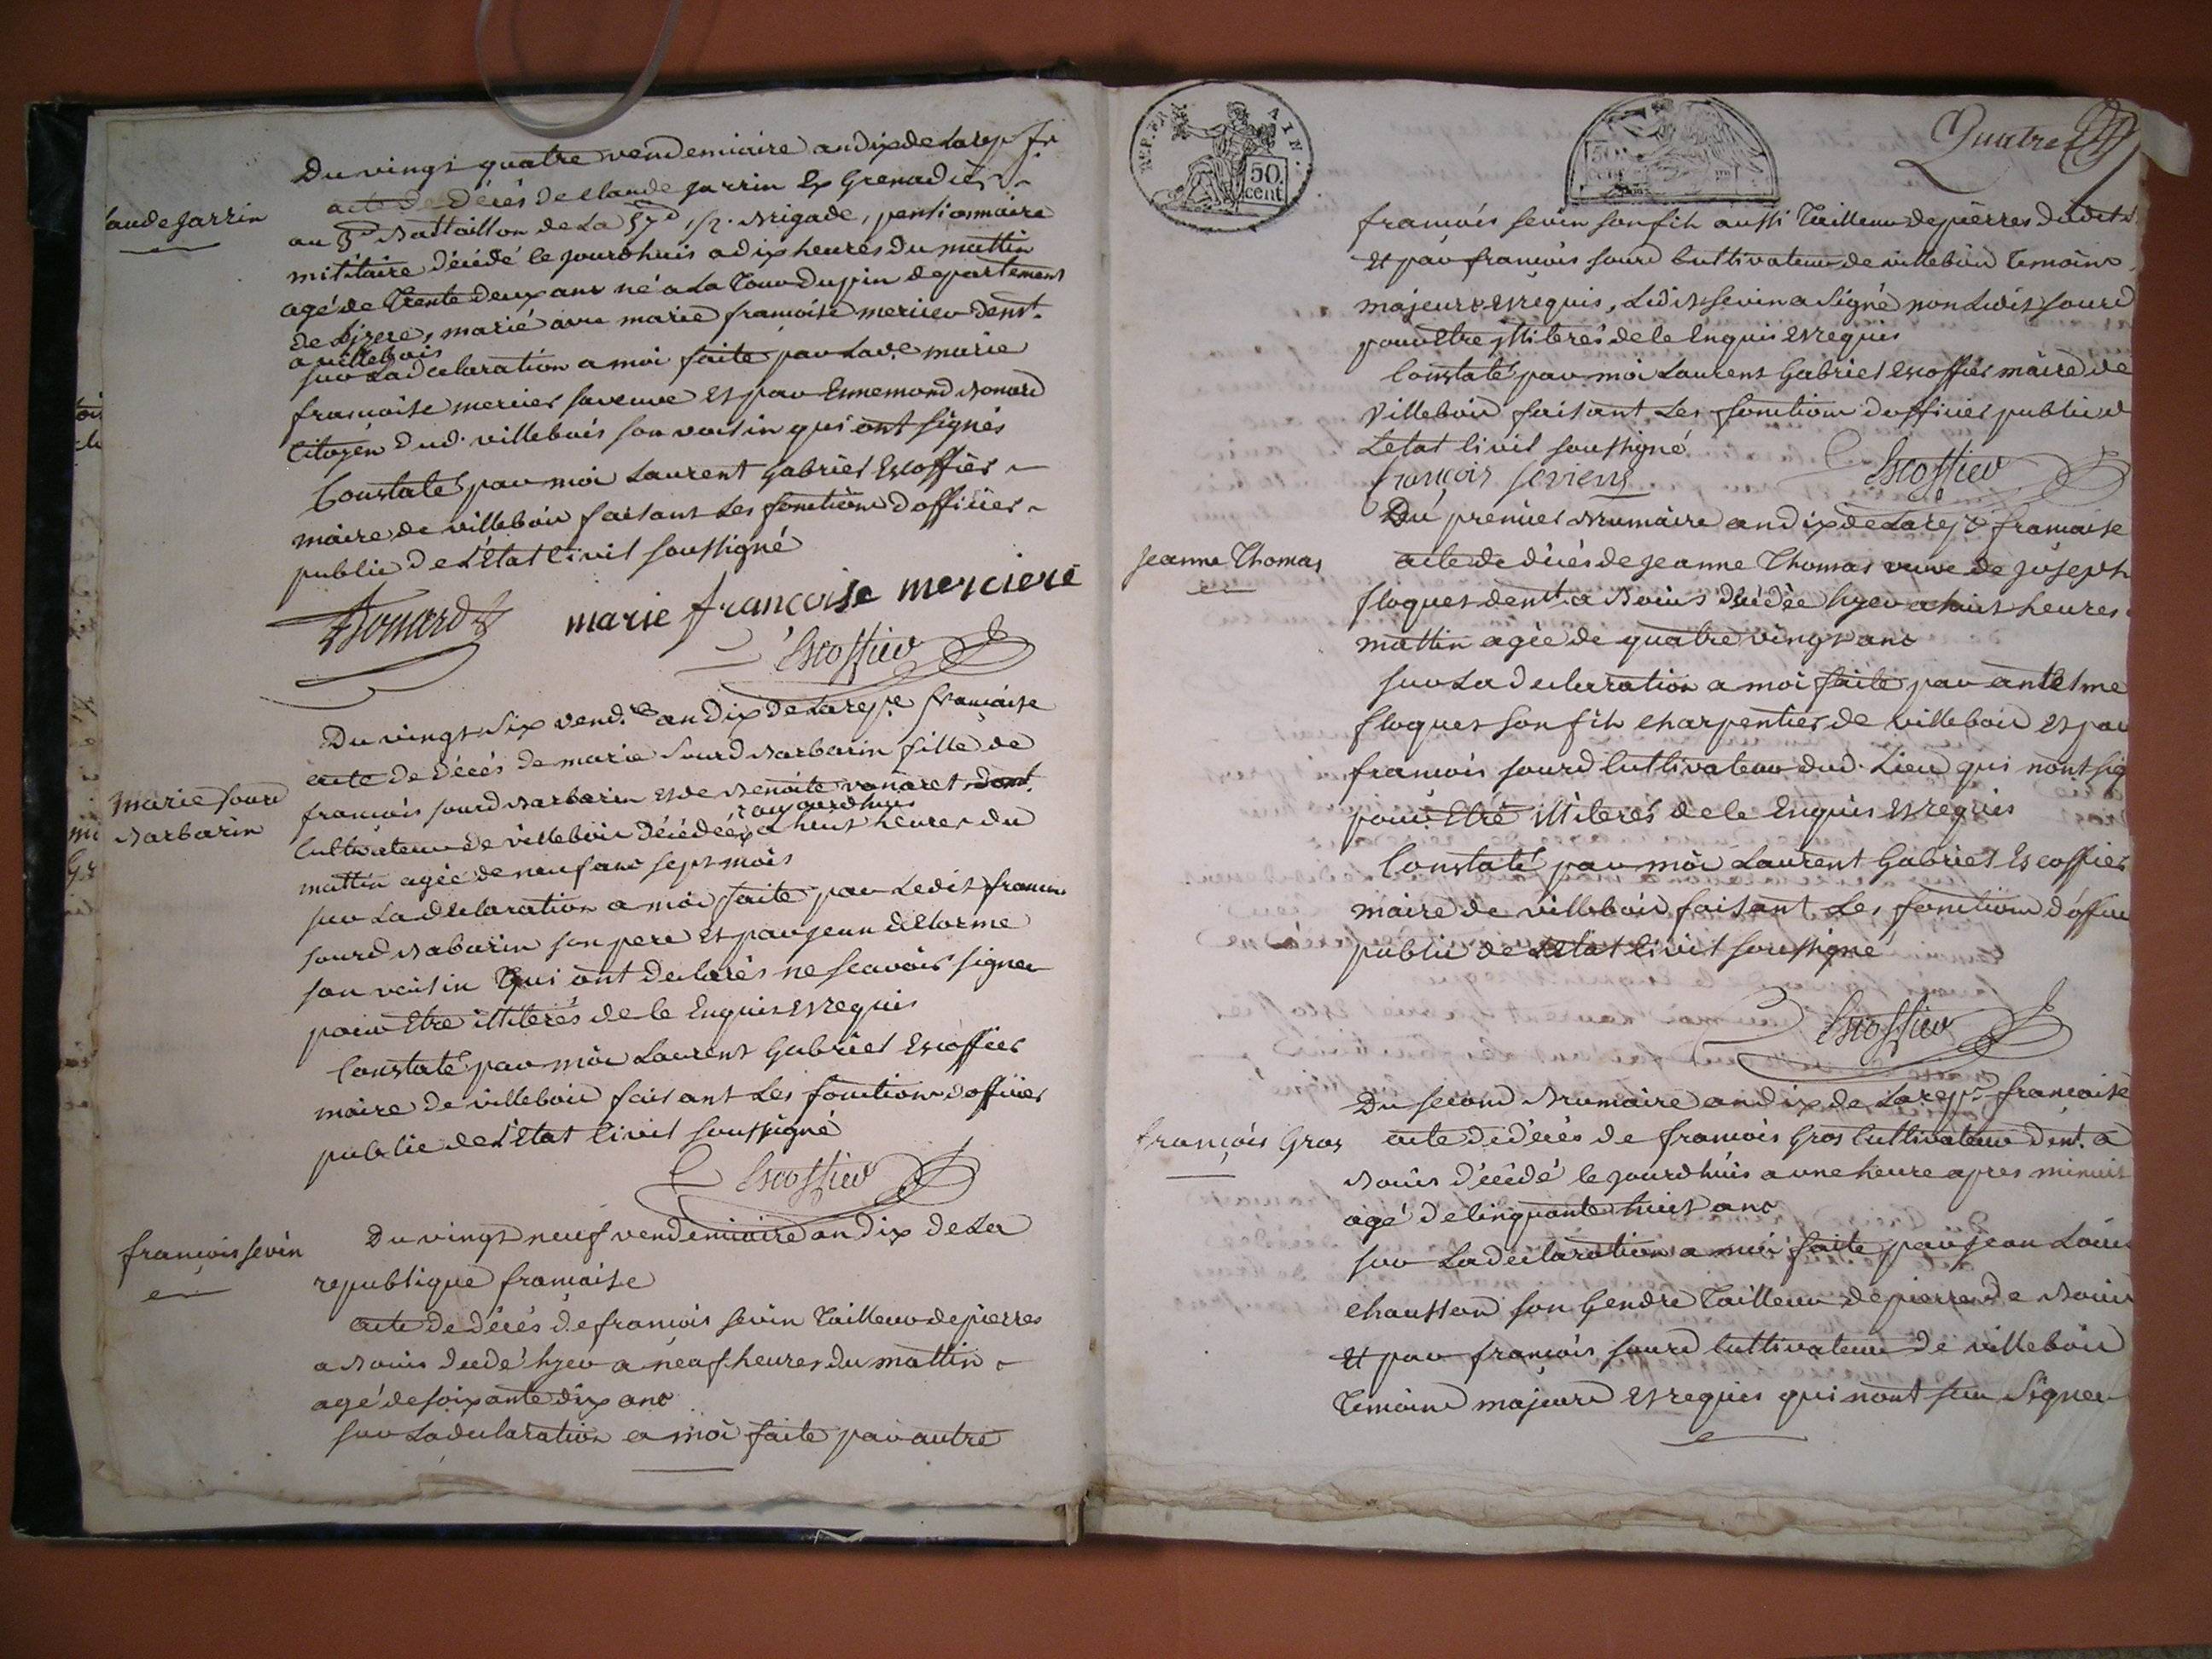 Du vingt quatre vendemiaire an dix de la rep fr
acte de décés de claude jarrin Ex Grenadier
laude jarrin
au 3e Battaillon de la 57e 1/2 Brigade, pensionnaire
militaire décédé le jourdhuis a dix heures du mattin
agé de Trente deux ans né a La Tour du pin departement
de Lizere, marié avec marie françoise mercier dent.
a villebois
sur La declaration a moi faite par lad.e marie
francoise mercier saveuve et par Ennemond Bonard
Citoyen dud. villebois son voisin qui ont signés
Constaté par moi Laurent Gabriel Escoffier
maire de villebois faisant Les fonctions dofficier
public de L'Etat Civil soussigné
Bonard marie françoise merciere
Escoffier
Du vingt Six vend.re an dix de La rep.e francaise
acte de décés de marie Sourd Barbarin fille de
marie Sourd
Barbarin
francois sourd Barbarin et de Benoite vanaret
aujourdhuy
Cultivateur de villebois décédée a huit heures du
mattin agée de neuf ans sept mois
sur La declaration a moi faite par Ledit francois
sourd Babarin son pere et par jean delorme
son voisin Qui ont declarés ne scavoir signer
pour Etre illiterés de ce Enquis et requis
Constaté par moi Laurent Gabriel Escoffier
maire de villebois faisant Les fonctions dofficier
public de L'Etat Civil soussigné
Escoffier
Du vingt neuf vendemiaire an dix de La
francois sevin
republique francaise
acte de décés de francois sevin Tailleur de pierres
a Bouis decedé hyer a neuf heures du mattin
agé de soixante dix ans
sur La declaration a moi faite par autre
REP. FRA
50.
cent
50
cent
Quatre
francois sevin son fils aussi Tailleur de pierres dudit
Et par francois sourd Cultivateur de villebois Temoins
majeurs et requis, Ledit sevin a signé non Ledit sourd
pour Etre illiterés de ce Enquis et requis
Constaté par moi Laurent Gabriel Escoffier maire de
Villebois faisant Les fonctions dofficier public d
Letat Civil soussigné
françois seviens Escoffier
Du premier Brumaire an dix de La rep.e francaise
jeanne Thomas
acte de décés de jeanne Thomas veuve de joseph
floquet dent. a Bouis décédée hyer a huit heures
mattin agée de quatre vingt ans
sur La declaration a moi faite par antelme
floquet son fils charpentier de villebois et par
francois sourd Cultivateur dud. Lieu qui nont sig
pour Etre illiterés de ce Enquis et requis
Constaté par moi Laurent Gabriel Escoffier
maire de villebois faisant Les fonctions d'offici
public de Letat Civil soussigné
Escoffier
Du second Brumaire an dix de La rep.e francaise
françois Gros
acte de décés de francois Gros Cultivateur dent. a
Bouis décédé le jourdhuis a une heure apres minuit
agé de Cinquante huit ans
sur La declaration a moi faite par jean Louis
chausson son Gendre Tailleur de pierre de Bouis
Et par françois sourd Cultivateur de villebois
Temoins majeurs et requis qui nont seu Signer